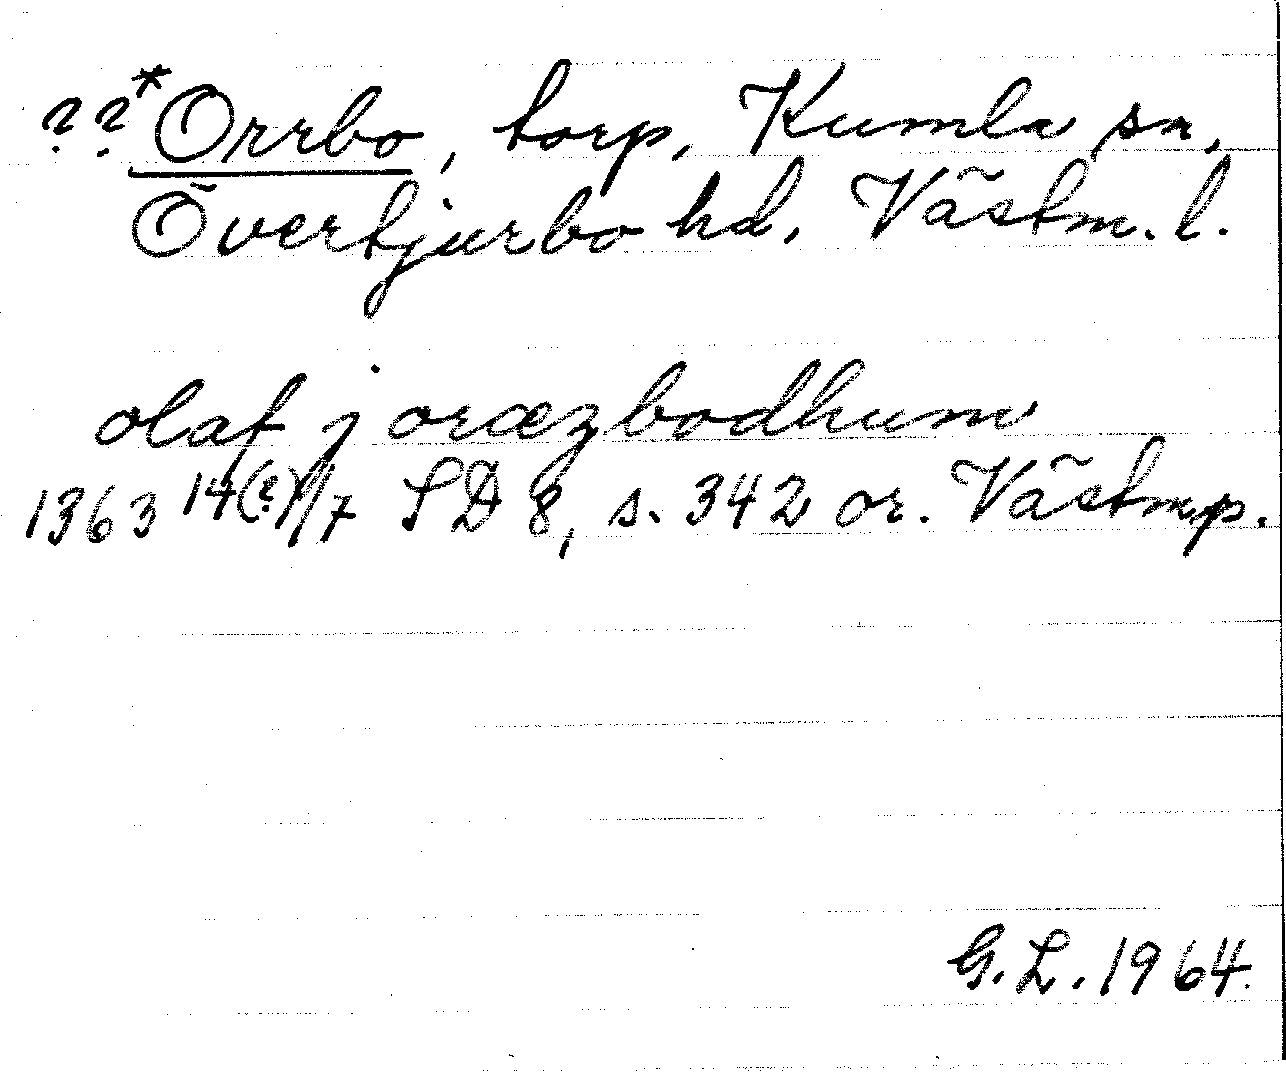 ??*Orrbo, torp, Kumla sn,
Övertjurbo hd, Västm. l.
olaf j oræzbodhum
1363 14(?)/7 SD 8, s. 342 or. Västmp.
G. L. 1964.